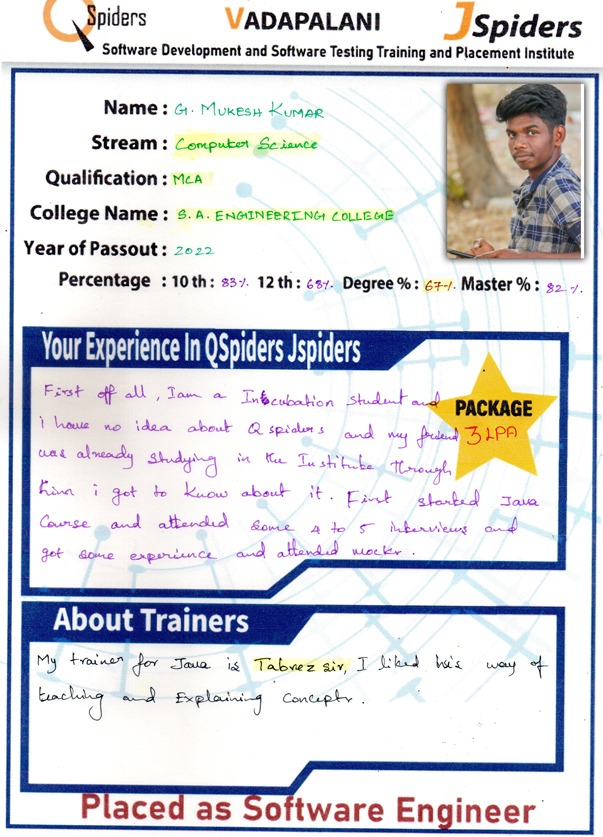 QSpiders VADAPALANI JSpiders
Software Development and Software Testing Training and Placement Institute
Name : G. MUKESH KUMAR
Stream : Computer Science
Qualification : MCA
College Name : S.A. ENGINEERING COLLEGE
Year of Passout : 2022
Percentage : 10 th : 83% 12 th : 68% Degree % : 67% Master % : 82%
Your Experience In QSpiders Jspiders
First off all, I am a Incubation student and
i have no idea about Qspiders and my friend
was already studying in the Institute through
him i got to know about it. First started Java
Course and attended some 4 to 5 interviews and
got some experience and attended mocks.
PACKAGE
3 LPA
About Trainers
My trainer for Java is Tabrez sir, I liked his way of
teaching and Explaining Concepts.
Placed as Software Engineer